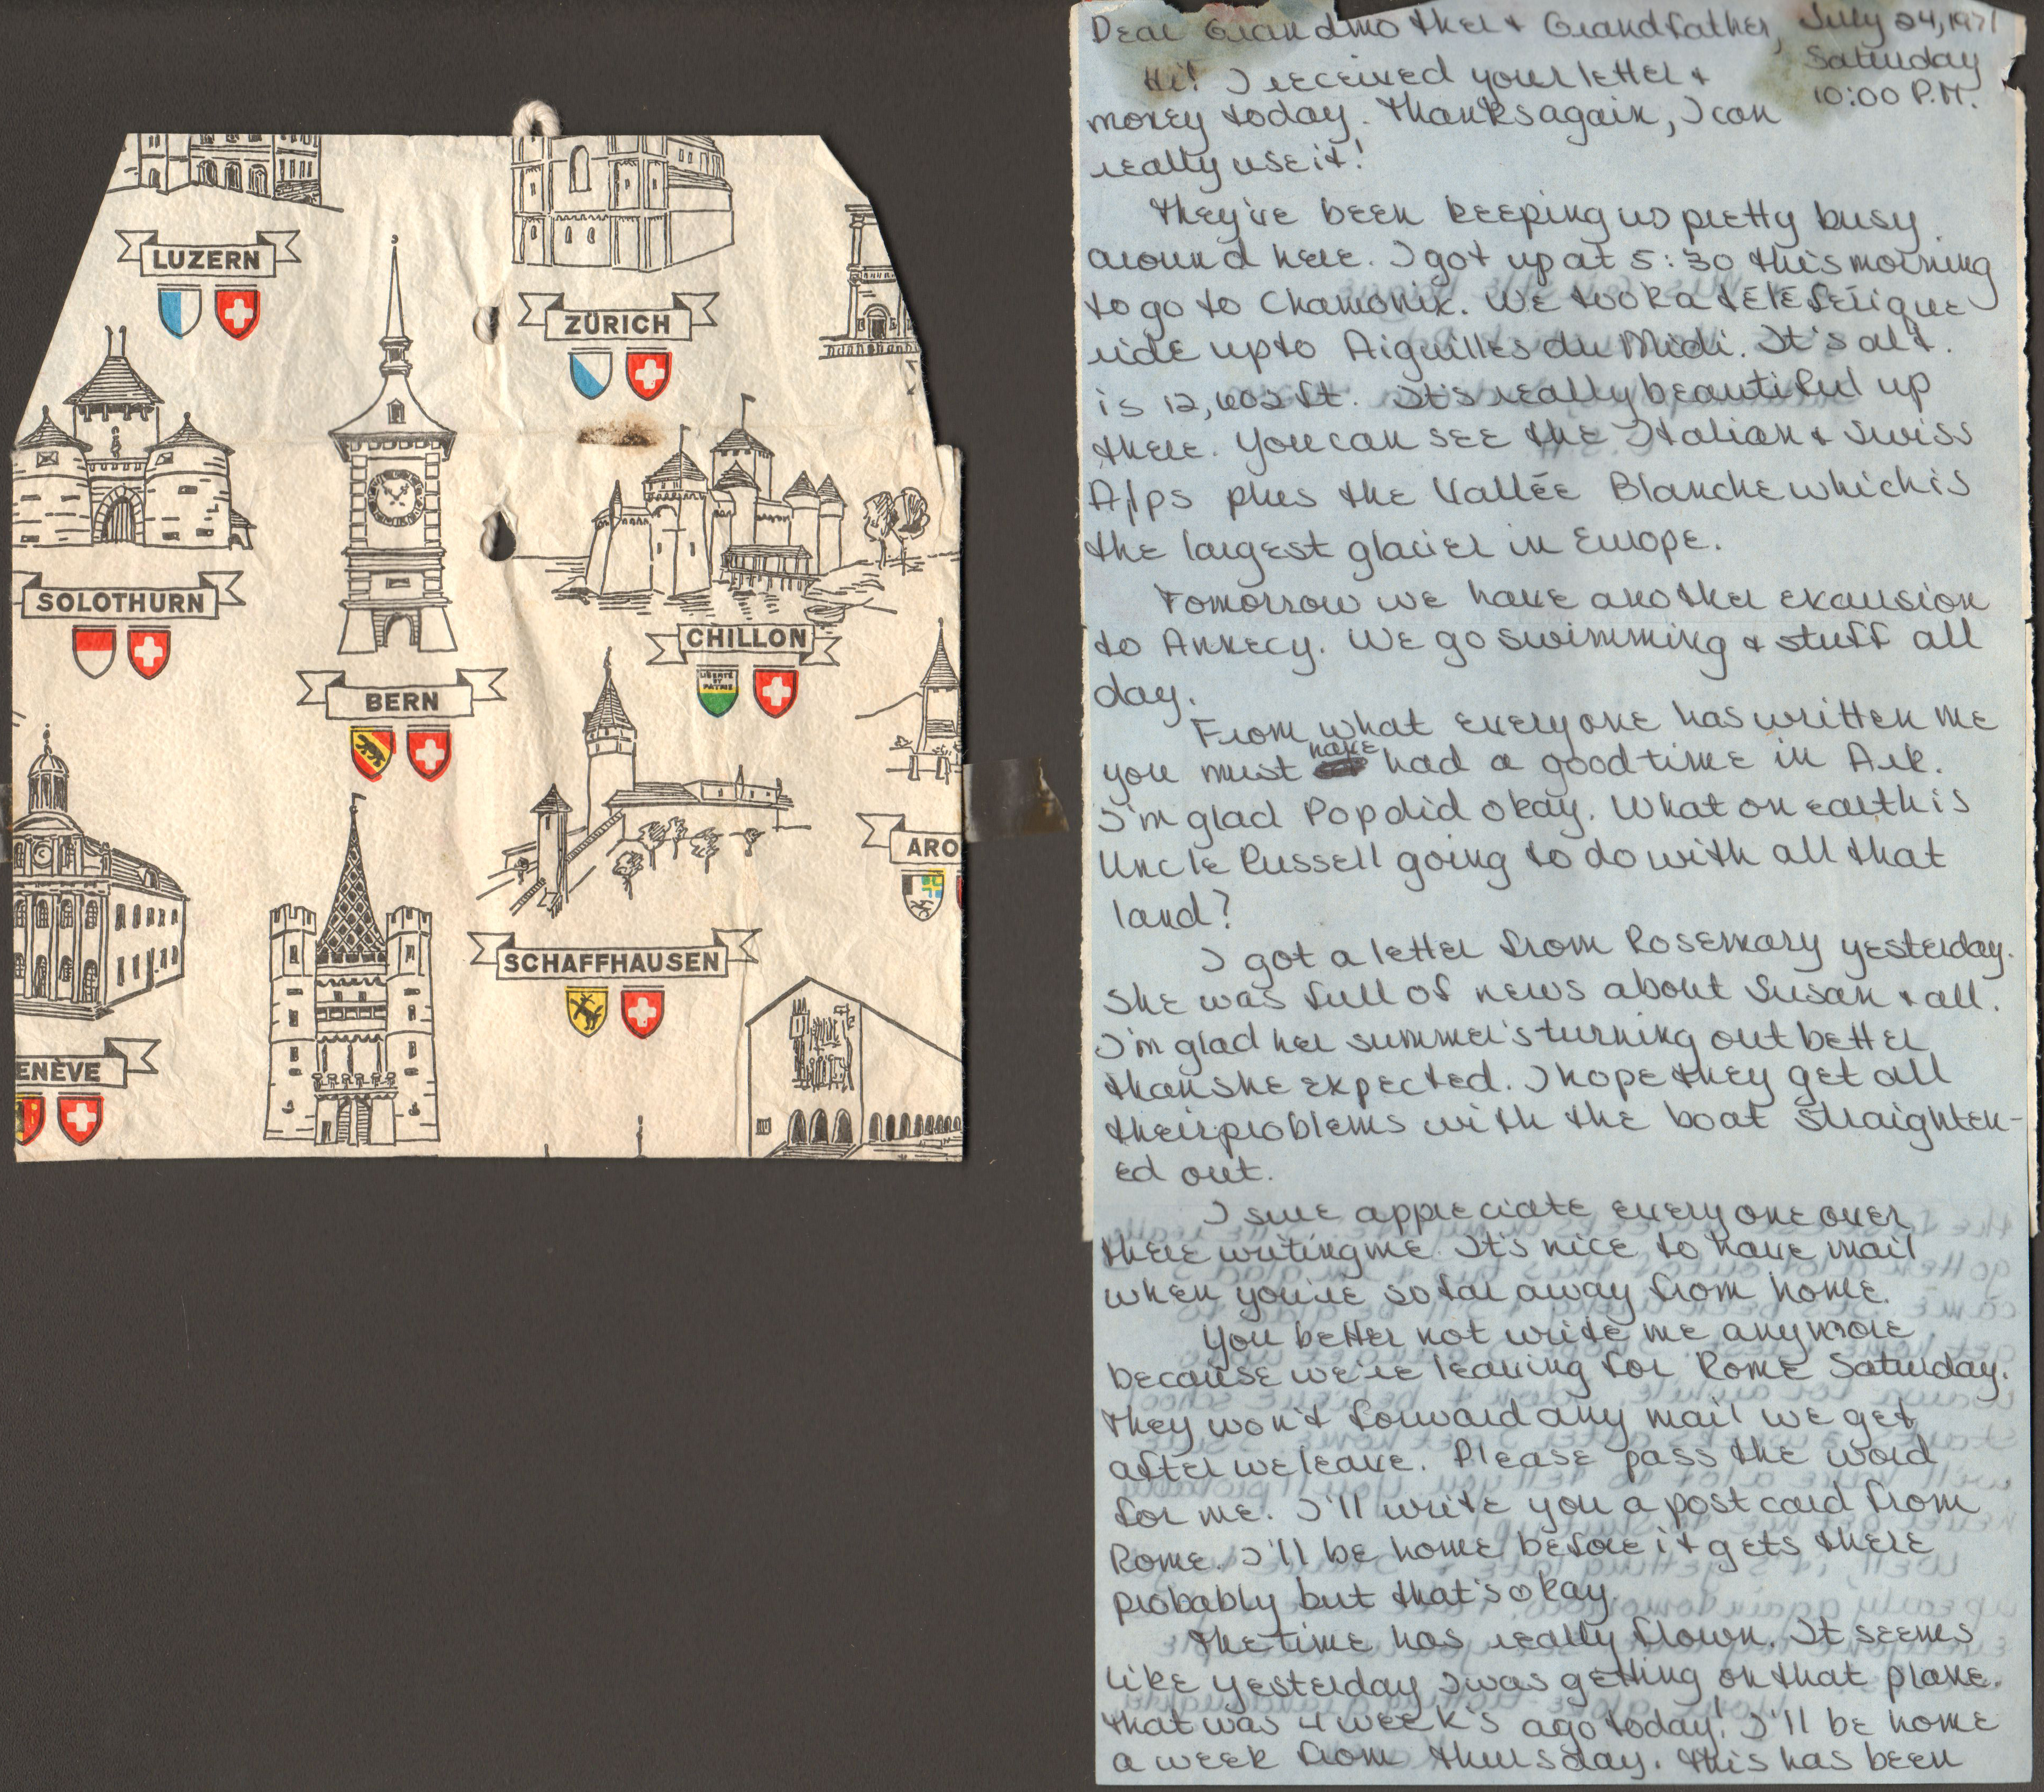 LUZERN
ZÜRICH
SOLOTHURN
BERN
CHILLON
LIBERTÉ
ET
PATRIE
ARO
SCHAFFHAUSEN
ENÈVE
Dear Grandmother & Grandfather, July 24, 1971
Saturday
10:00 P.M.
Hi! I received your letter &
money today. Thanks again, I can
really use it!
They've been keeping us pretty busy
around here. I got up at 5:30 this morning
to go to Chamonix. We took a téléférique
ride up to Aiguilles du Midi. It's alt.
is 12,602 ft. It's really beautiful up
there. You can see the Italian & Swiss
Alps plus the Vallée Blanche which is
the largest glacier in Europe.
Tomorrow we have another excursion
to Annecy. We go swimming & stuff all
day.
From what everyone has written me
you must have had a good time in Ark.
I'm glad Pop did okay. What on earth is
Uncle Russell going to do with all that
land?
I got a letter from Rosemary yesterday.
She was full of news about Susan & all.
I'm glad her summer's turning out better
than she expected. I hope they get all
their problems with the boat straighten-
ed out.
I sure appreciate everyone over
there writing me. It's nice to have mail
when you're so far away from home.
You better not write me anymore
because we're leaving for Rome Saturday.
They won't forward any mail we get
after we leave. Please pass the word
for me. I'll write you a post card from
Rome. I'll be home before it gets there
probably but that's okay.
The time has really flown. It seems
like yesterday I was getting on that plane.
That was 4 week's ago today! I'll be home
a week from Thursday. This has been